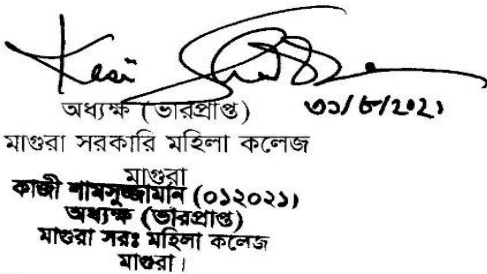 অধ্যক্ষ (ভারপ্রাপ্ত) ৩১/৮/২০২১
মাগুরা সরকারি মহিলা কলেজ
মাগুরা
কাজী শামসুজ্জামান (০১২০২১)
অধ্যক্ষ (ভারপ্রাপ্ত)
মাগুরা সরঃ মহিলা কলেজ
মাগুরা।